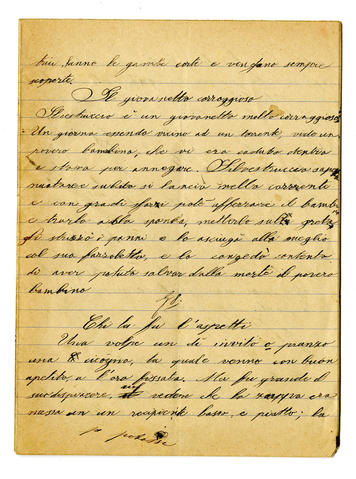 bugie, hanno le gambe corte e vengono sempre
scoperte.
Il giovanetto coraggioso
è un giovanetto molto coraggioso
Un giorno essendo vicino ad un torente, vide un
povero bambino, che vi era caduto dentro
e stava per annegare. Silvestruccio sapeva
nuotare e subito si lanciò nella corrente
e con grandi sforzi potè afferrare il bambi
e trarlo alla sponda, metterlo sulla
gli strizzò i panni e lo asciugò alla meglio
col suo fazzoletto, e lo congedò contento
di aver potuto salvar dalla morte il povero
bambino
Chi la fa l'aspetti
Una volpe un dì invitò a pranzo
una cicogna, la quale venne con buon
apetito, a l'ora fissata. Ma fu grande il
suo dispiacere, nel vedere che la zuppa era
messa in un recipiente basso, e piatto; la